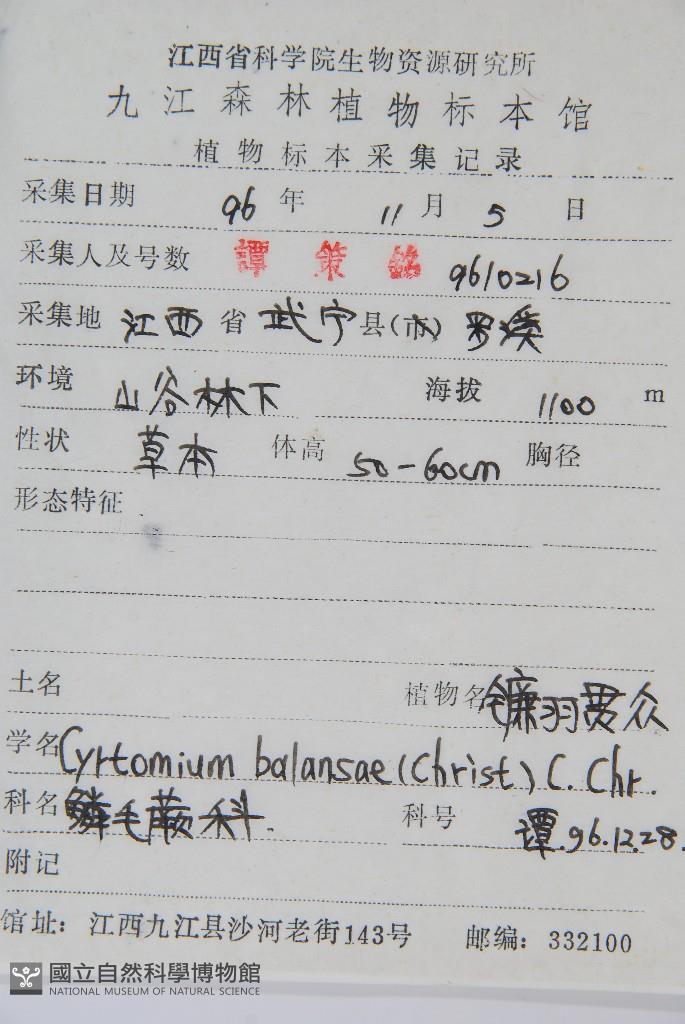 江西省科学院生物资源研究所
九江森林植物标本馆
植物标本采集记录
采集日期 96 年 11 月 5 日
采集人及号数 譚策銘 9610216
采集地 江西 省 武宁 县(市) 罗溪
环境 山谷林下 海拔 1100 m
性状 草本 体高 50-60cm 胸径
形态特征
土名 植物名 镰羽贯众
学名 Cyrtomium balansae (Christ) C. Chr.
科名 鳞毛蕨科. 科号 谭.96.12.28.
附记
馆址：江西九江县沙河老街143号 邮编：332100
國立自然科學博物館
NATIONAL MUSEUM OF NATURAL SCIENCE